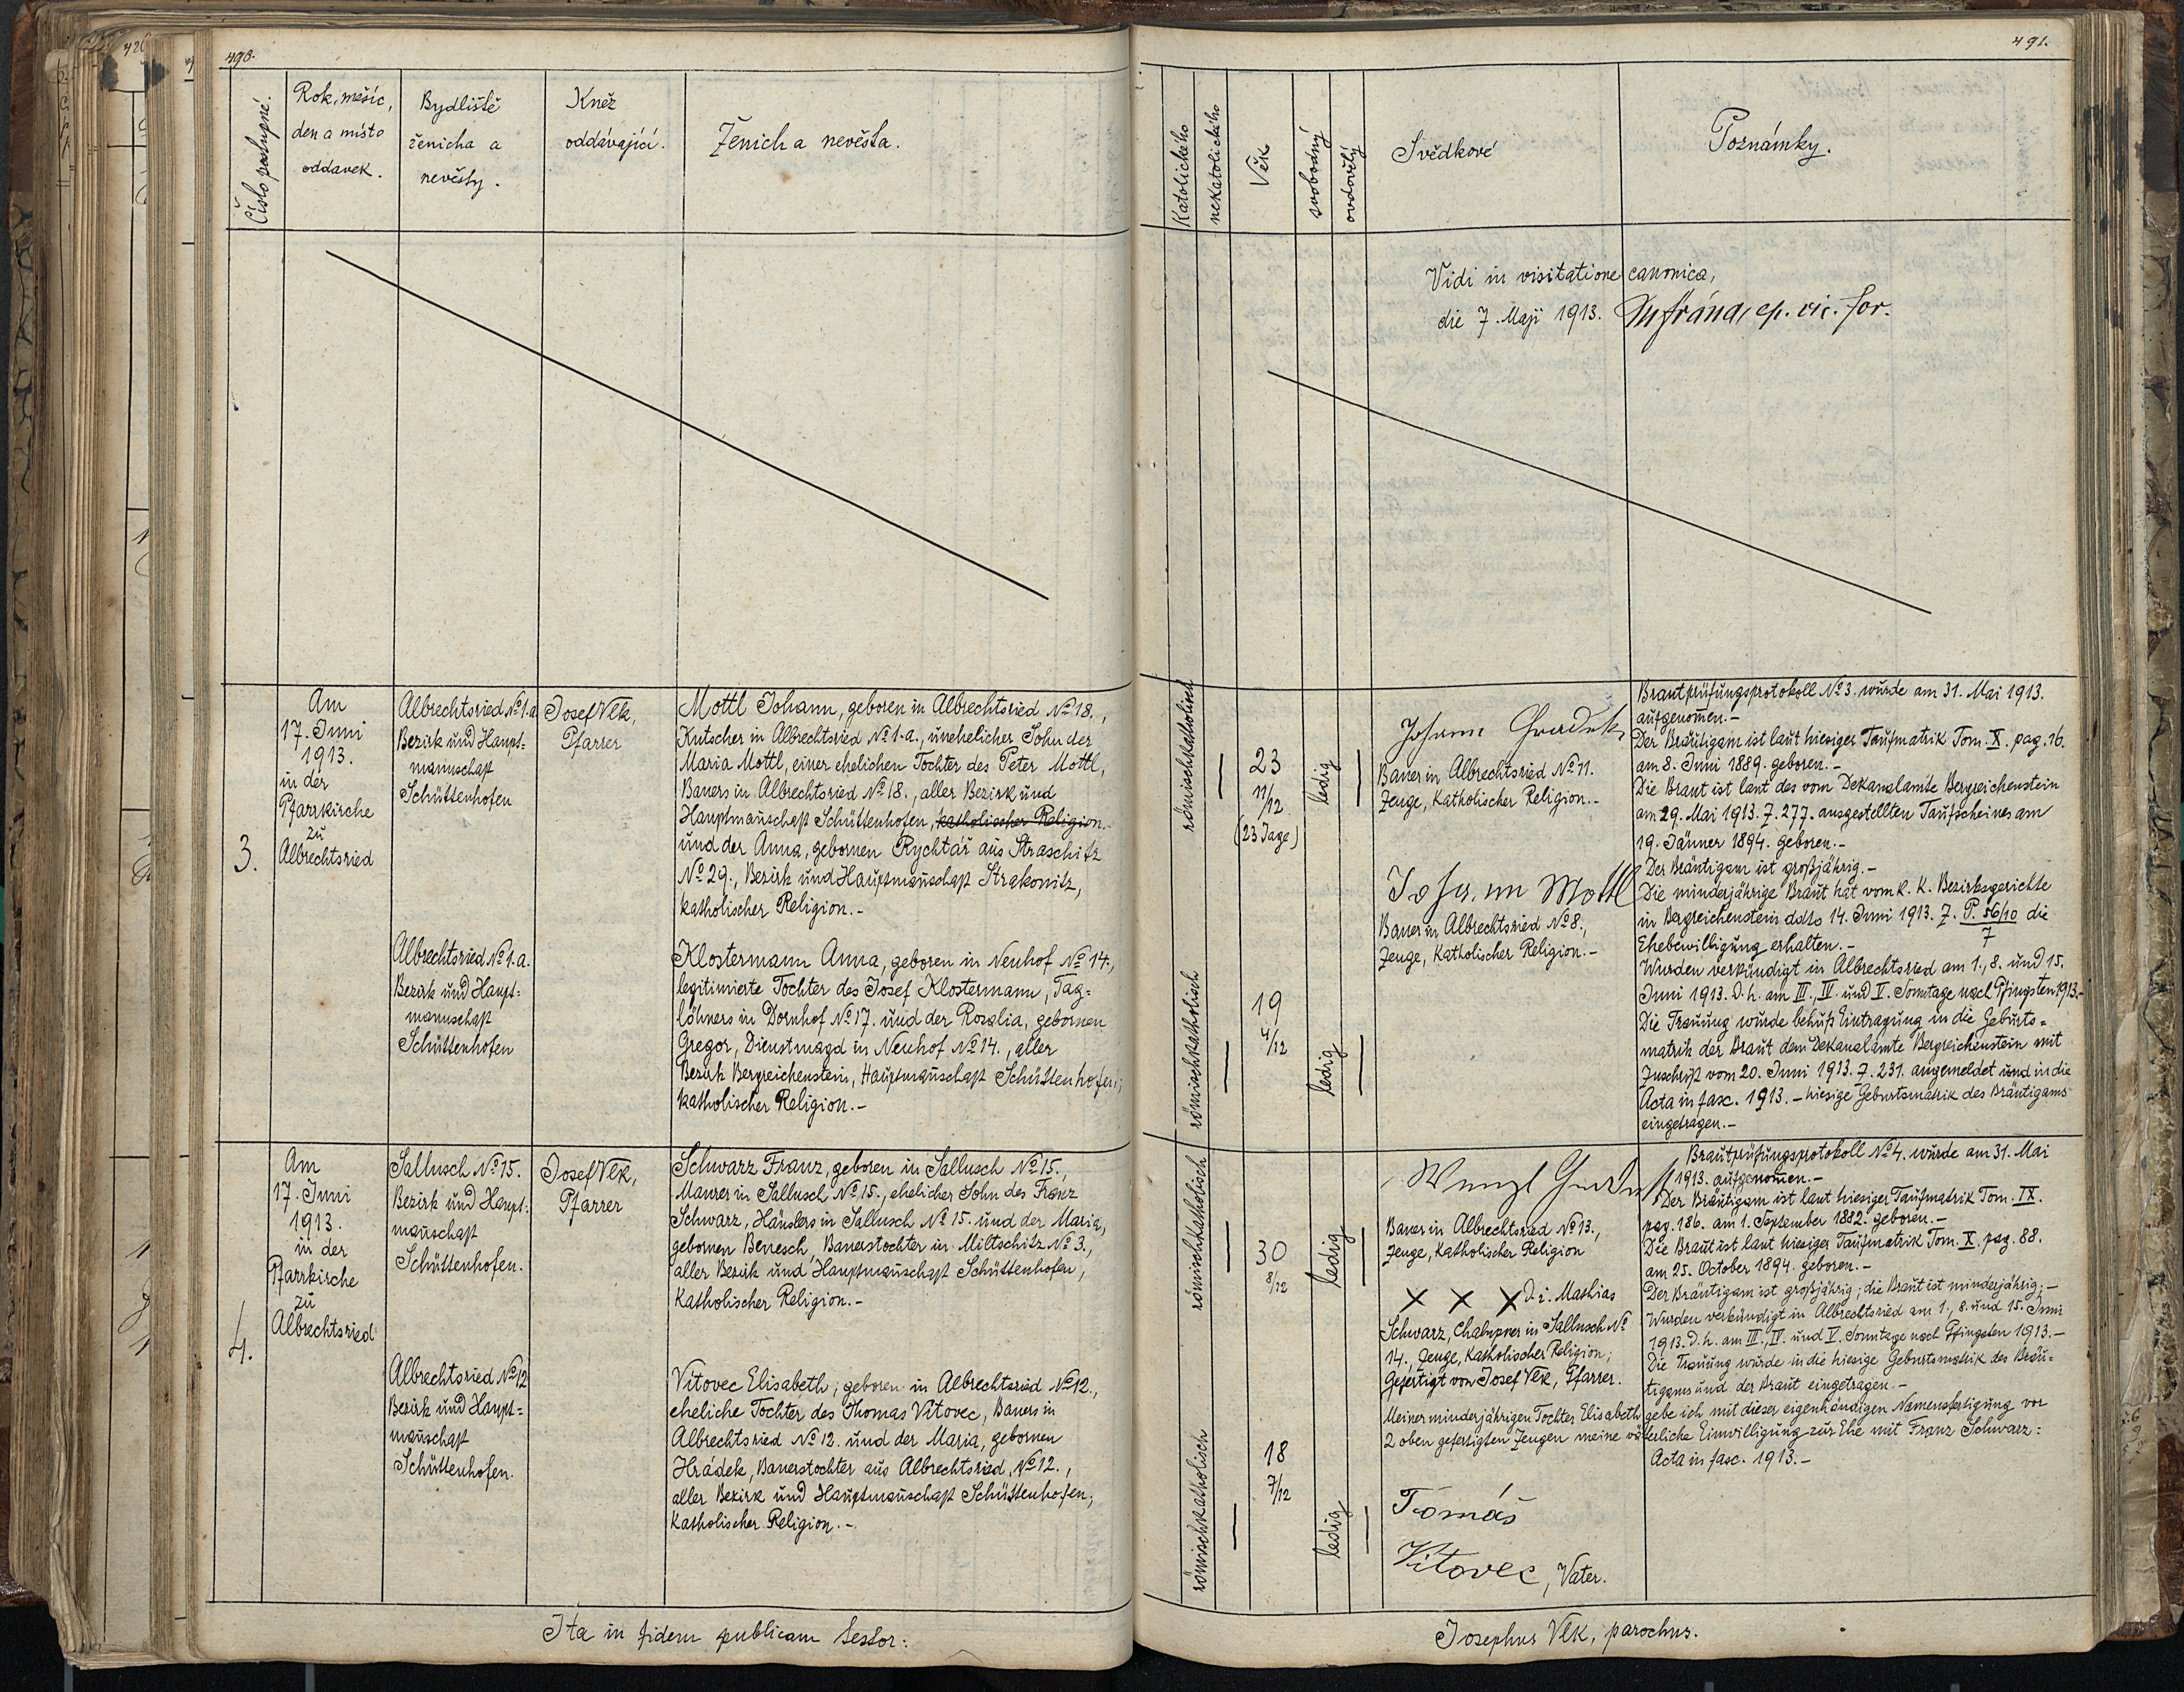 490.
Číslo postupné.
Rok, měsíc,
den a místo
oddavek.
Bydliště
ženicha a
nevěsty.
Kněž
oddávající.
Ženich a nevěsta.
3.
Am
17. Juni
1913.
in der
Pfarrkirche
zu
Albrechtsried
Albrechtsried No 1. a
Bezirk und Haupt=
mannschaft
Schüttenhofen
Josef Vlk,
Pfarrer
Mottl Johann, geboren in Albrechtsried No 18.,
Kutscher in Albrechtsried No 1. a., unehelicher Sohn der
Maria Mottl, einer ehelichen Tochter des Peter Mottl,
Bauers in Albrechtsried No 18., aller Bezirk und
Hauptmanschaft Schüttenhofen, katholischer Religion.
und der Anna, gebornen Rychtář aus Straschitz
No 29., Bezirk und Hauptmanschaft Strakonitz,
katholischer Religion.-
Albrechtsried No 1. a.
Bezirk und Haupt=
mannschaft
Schüttenhofen
Klostermann Anna, geboren in Neuhof No 14.,
legitimierte Tochter des Josef Klostermann, Tag=
löhners in Dornhof No 17. und der Rozalia, gebornen
Gregor, Dienstmagd in Neuhof No 14., aller
Bezirk Bergreichenstein, Hauptmanschaft Schüttenhofen;
katholischer Religion.-
4.
Am
17. Juni
1913.
in der
Pfarrkirche
zu
Albrechtsried
Sallusch No 15.
Bezirk und Haupt=
manschaft
Schüttenhofen.
Josef Vlk,
Pfarrer
Schwarz Franz, geboren in Sallusch No 15.,
Maurer in Sallusch No 15., ehelicher Sohn des Franz
Schwarz, Häuslers in Sallusch No 15. und der Maria,
gebornen Benesch, Bauerstochter in Miltschitz No 3.,
aller Bezirk und Hauptmanschaft Schüttenhofen,
katholischer Religion.-
Albrechtsried No 12
Bezirk und Haupt=
manschaft
Schüttenhofen.
Vítovec Elisabeth, geboren in Albrechtsried No 12.,
eheliche Tochter des Thomas Vítovec, Bauers in
Albrechtsried No 12. und der Maria, gebornen
Hrádek, Bauerstochter aus Albrechtsried, No 12.,
aller Bezirk und Hauptmanschaft Schüttenhofen,
katholischer Religion.-
Ita in fidem publicam testor:
491.
Katolického
nekatolického
Věk
svobodný
ovdovělý
Svědkové
Poznámky.
Vidi in visitatione canonica,
die 7. Maji 1913. ep. vic. for.
römischkatholisch
23
11/12
(23 Tage)
ledig
Johann
Bauer in Albrechtsried No 11.
Zeuge, katholischer Religion.-
Johann Mottl
Bauer in Albrechtsried No 8.,
Zeuge, katholischer Religion.-
römischkatholisch
19
4/12
ledig
Brautprüfungsprotokoll No 3. wurde am 31. Mai 1913.
aufgenomen.-
Der Bräutigam ist laut hiesiger Taufmatrik Tom. X. pag. 16.
am 8. Juni 1889. geboren.-
Die Braut ist laut des vom Dekanalamte Bergreichenstein
am 29. Mai 1913. Z. 277. ausgestellten Taufscheines am
19. Jänner 1894. geboren.-
Der Bräutigam ist großjährig.-
Die minderjährige Braut hat vom k. k. Bezirksgerichte
in Bergreichenstein ddto 14. Juni 1913. Z. P. 56/10 die
7
Ehebewilligung erhalten.-
Wurden verkündigt in Albrechtsried am 1., 8. und 15.
Juni 1913. D. h. am III., IV. und V. Sonntage nach Pfingsten 1913.-
Die Trauung wurde behufs Eintragung in die Geburts=
matrik der Braut dem Dekanalamte Bergreichenstein mit
Zuschrift vom 20. Juni 1913. Z. 231. angemeldet und in die
Acta in fasc. 1913.- hiesige Geburtsmatrik des Bräutigams
eingetragen.-
römischkatholisch
30
8/12
ledig
Wenzl
Bauer in Albrechtsried No 13.,
Zeuge, katholischer Religion
X X X D. i. Mathias
Schwarz, Chalupner in Sallusch No
14., Zeuge, katholischer Religion;
Gefertigt von Josef Vlk, Pfarrer.
Brautprüfungsprotokoll No 4. wurde am 31. Mai
1913. aufgenomen.-
Der Bräutigam ist laut hiesiger Taufmatrik Tom. IX.
pag. 186. am 1. September 1882. geboren.-
Die Braut ist laut hiesiger Taufmatrik Tom. X. pag. 88.
am 25. October 1894. geboren.-
Der Bräutigam ist großjährig; die Braut ist minderjährig.-
Wurden verkündigt in Albrechtsried am 1., 8. und 15. Juni
1913. D. h. am III., IV. und V. Sonntage nach Pfingsten 1913.-
Die Trauung wurde in die hiesige Geburtsmatrik des Bräu=
tigams und der Braut eingetragen.-
Meiner minderjährigen Tochter Elisabeth gebe ich mit dieser eigenhändigen Namensfertigung vor
2 oben gefertigten Zeugen meine väterliche Einwilligung zur Ehe mit Franz Schwarz:
Acta in fasc. 1913.-
römischkatholisch
18
7/12
ledig
Tomáš
Vítovec, Vater.
Josephus Vlk, parochus.